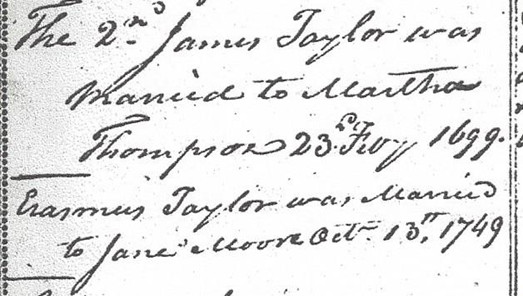 The 2nd James Taylor was
Married to Martha
Thompson 23d Feby 1699.
Erasmus Taylor was Married
to Jane Moore Octr 13th, 1749